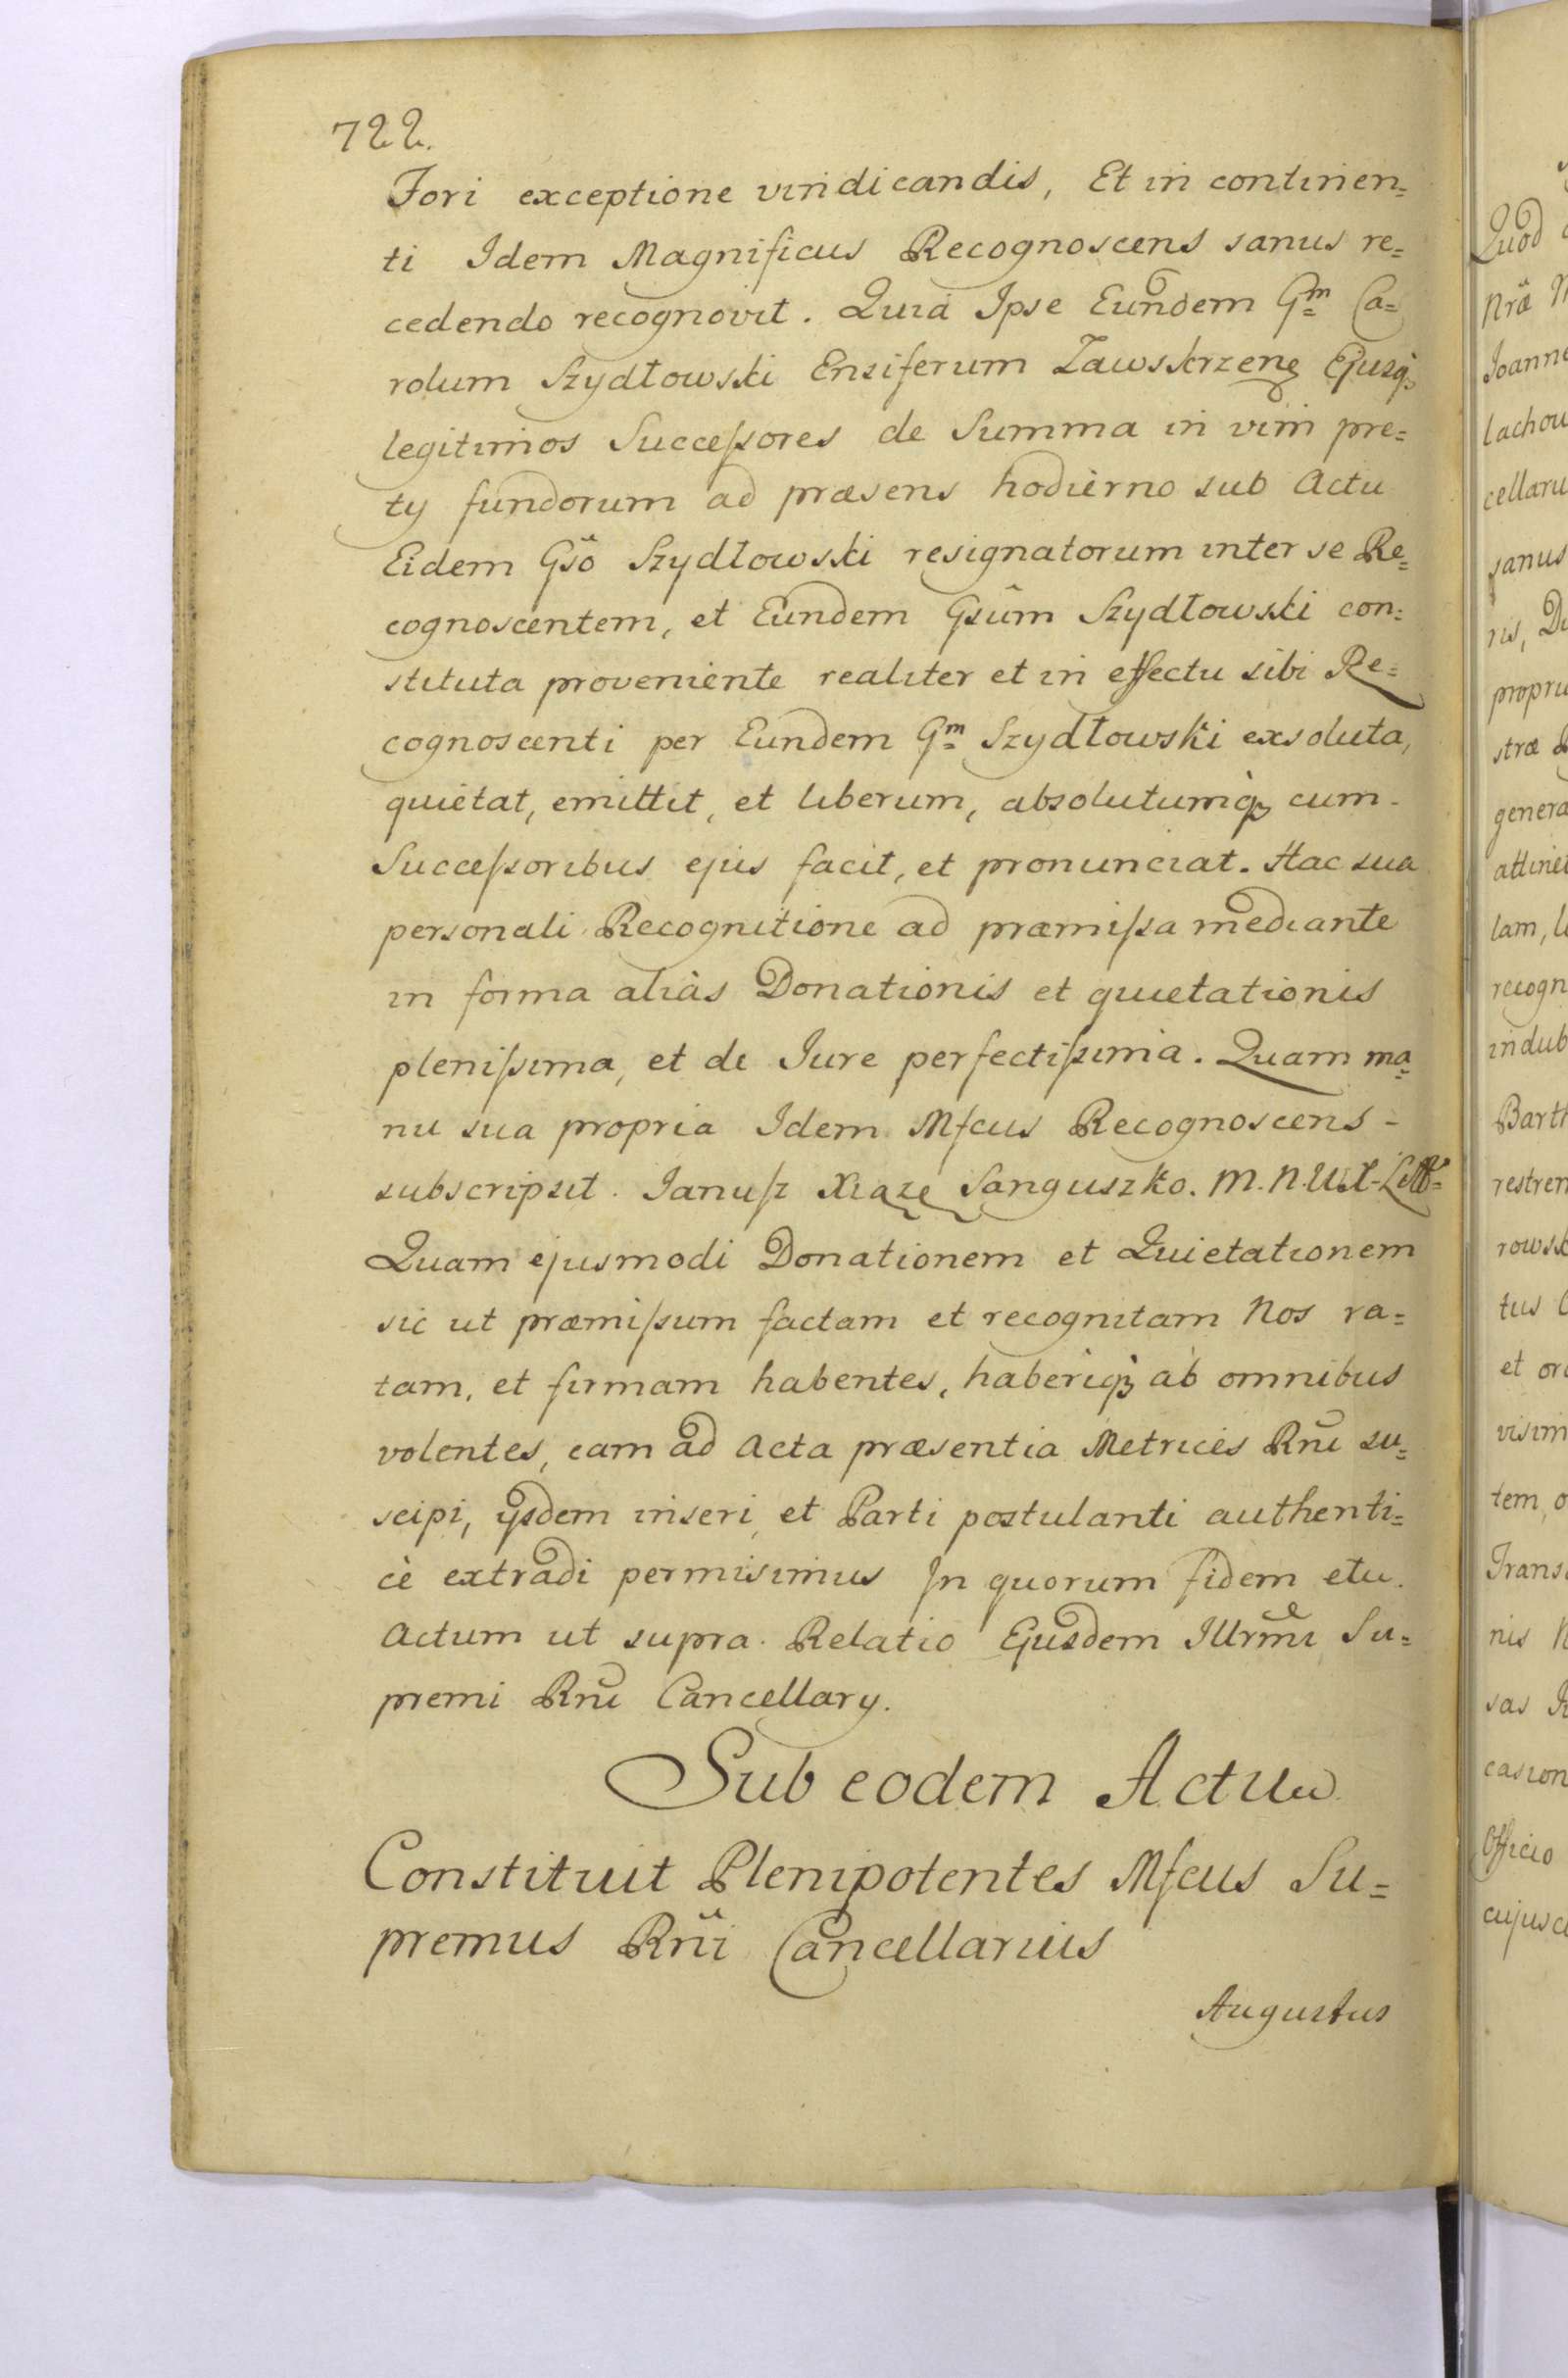 722.
Fori exceptione vindicandis, Et in continen=
ti Idem Magnificus Recognoscens sanus re=
cedendo recognovit. Quia Ipse Eundem Gm Ca=
rolum Szydłowski Ensiferum Zawskrzeng Ejusq3
legitimos Succeſsores de Summa in vim pre=
ty fundorum ad præsens hodierno sub Actu
Eidem Gsõ Szydłowski resignatorum inter se Re=
cognoscentem, et Eundem Gsûm Szydłowski con=
stituta proveniente realiter et in effectu sibi Re=
cognoscenti per Eundem Gm Szydłowski exsoluta,
quietat, emittit, et liberum, absolutumq3 cum-
Succeſsoribus ejus facit, et pronunciat. Hac sua
personali Recognitione ad præmiſsa mediante
in forma aliàs Donationis et quietationis
pleniſsima, et de Jure perfectiſsima. Quam ma=
nu sua propria Idem Mfcus Recognoscens-
subscripsit. Januſz Xiąze Sanguszko. M. N. W. X-Litt=
Quam ejusmodi Donationem et Quietationem
sic ut præmiſsum factam et recognitam Nos ra=
tam, et firmam habentes, haberiq3 ab omnibus
volentes, eam ad Acta præsentia Metrices Rnĩ su=
scipi, ijsdem inseri, et Parti postulanti authenti=
cè extradi permisimus In quorum fidem etc.
Actum ut supra. Relatio Ejusdem Illrmi Su=
premi Rnĩ Cancellary.
Sub eodem Actu
Constituit Plenipotentes Mfcus Su=
premus Rnĩ Cancellarius
Augustus
Quod
Nrã
Joanne
lachou
cellaru
sanus
ris, Du
propriu
stræ
genera
attinet
lam, l
recogn
indub
Barth
restren
rowsk
tus C
et or
visim
tem, o
Trans
nis N
sas
casion
Officio
cujusc